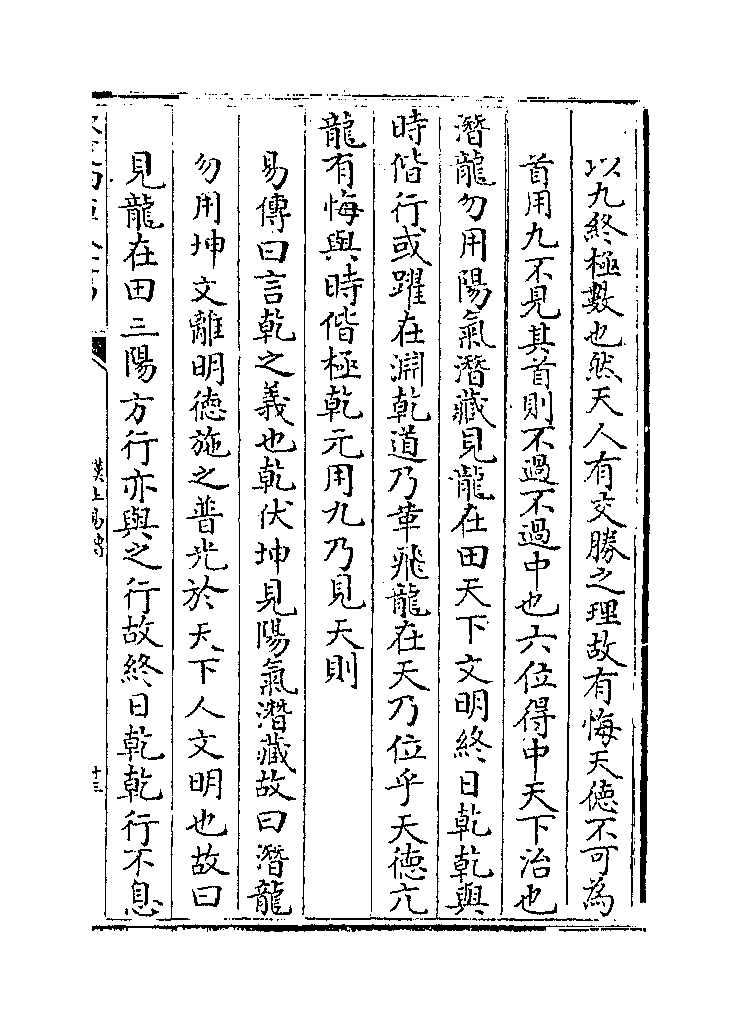 以九終極數也然天人有交勝之理故有悔天德不可為
首用九不見其首則不過不過中也六位得中天下治也
潛龍勿用陽氣潛藏見龍在田天下文明終日乾乾與
時偕行或躍在淵乾道乃革飛龍在天乃位乎天德亢
龍有悔與時偕極乾元用九乃見天則
易傳曰言乾之義也乾伏坤見陽氣潛藏故曰潛龍
勿用坤文離明德施之普光於天下人文明也故曰
見龍在田三陽方行亦與之行故終日乾乾行不息
漢上易傳
十三